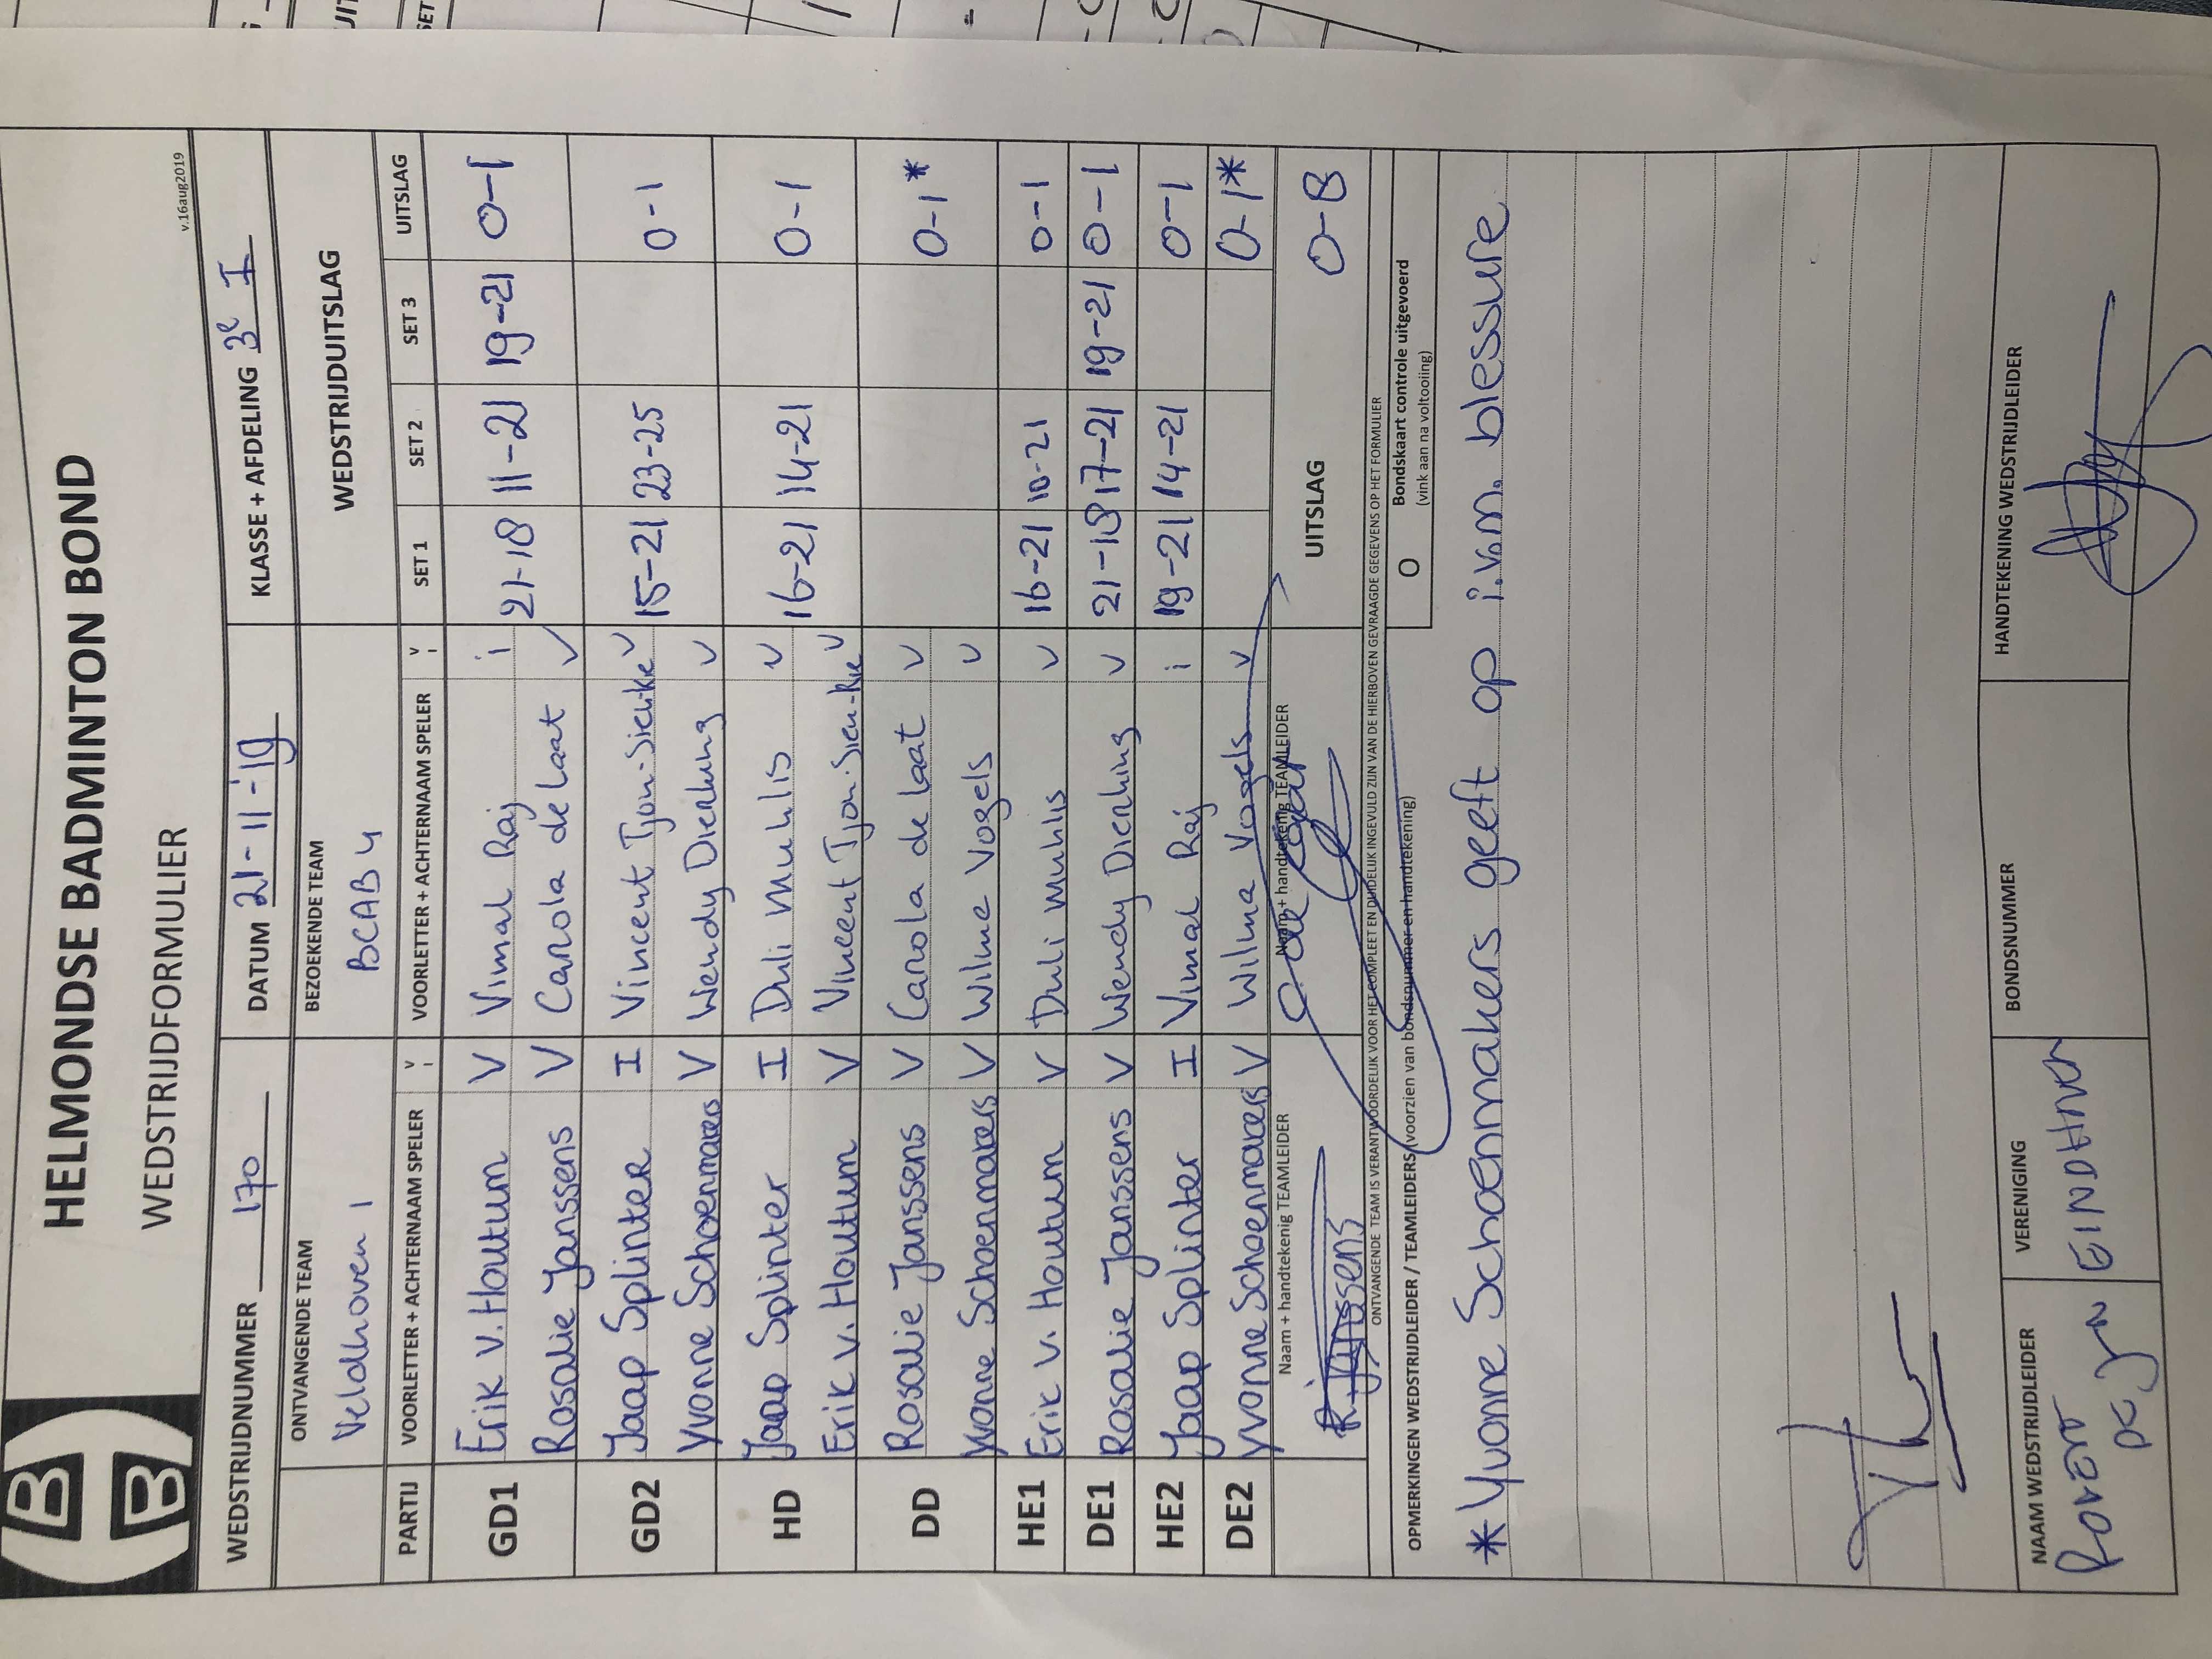 HELMONDSE BADMINTON BOND
WEDSTRIJDFORMULIER
v.16aug2019
WEDSTRIJDNUMMER 170 DATUM 21-11-'19 KLASSE + AFDELING 3e I
ONTVANGENDE TEAM BEZOEKENDE TEAM WEDSTRIJDUITSLAG
Veldhoven 1 BCAB 4
PARTIJ VOORLETTER + ACHTERNAAM SPELER V I VOORLETTER + ACHTERNAAM SPELER V I SET 1 SET 2 SET 3 UITSLAG
GD1 Erik v. Houtum V Vimal Raj i 21-18 11-21 19-21 0-1
Rosalie Janssens V Carola de Laat V
GD2 Jaap Splinter I Vincent Tjon-Sieukie V 15-21 23-25 0-1
Yvonne Schoenmakers V Wendy Dierking V
HD Jaap Splinter I Duli Muhlis V 16-21 14-21 0-1
Erik v. Houtum V Vincent Tjon-Sieu-Kie V
DD Rosalie Janssens V Carola de Laat V 0-1*
Yvonne Schoenmakers V Wilma Vogels V
HE1 Erik v. Houtum V Duli Muhlis V 16-21 10-21 0-1
DE1 Rosalie Janssens V Wendy Dierking V 21-18 17-21 19-21 0-1
HE2 Jaap Splinter I Vimal Raj i 19-21 14-21 0-1
DE2 Yvonne Schoenmakers V Wilma Vogels V 0-1*
Naam + handtekenig TEAMLEIDER Naam + handtekenig TEAMLEIDER UITSLAG 0-8
R. Janssens
ONTVANGENDE TEAM IS VERANTWOORDELIJK VOOR HET COMPLEET EN DUIDELIJK INGEVULD ZIJN VAN DE HIERBOVEN GEVRAAGDE GEGEVENS OP HET FORMULIER
OPMERKINGEN WEDSTRIJDLEIDER / TEAMLEIDERS (voorzien van bondsnummer en handtekening) O Bondskaart controle uitgevoerd
(vink aan na voltooiing)
* Yvonne Schoenmakers geeft op i.v.m. blessure.
NAAM WEDSTRIJDLEIDER VERENIGING BONDSNUMMER HANDTEKENING WEDSTRIJDLEIDER
EINDHOVEN